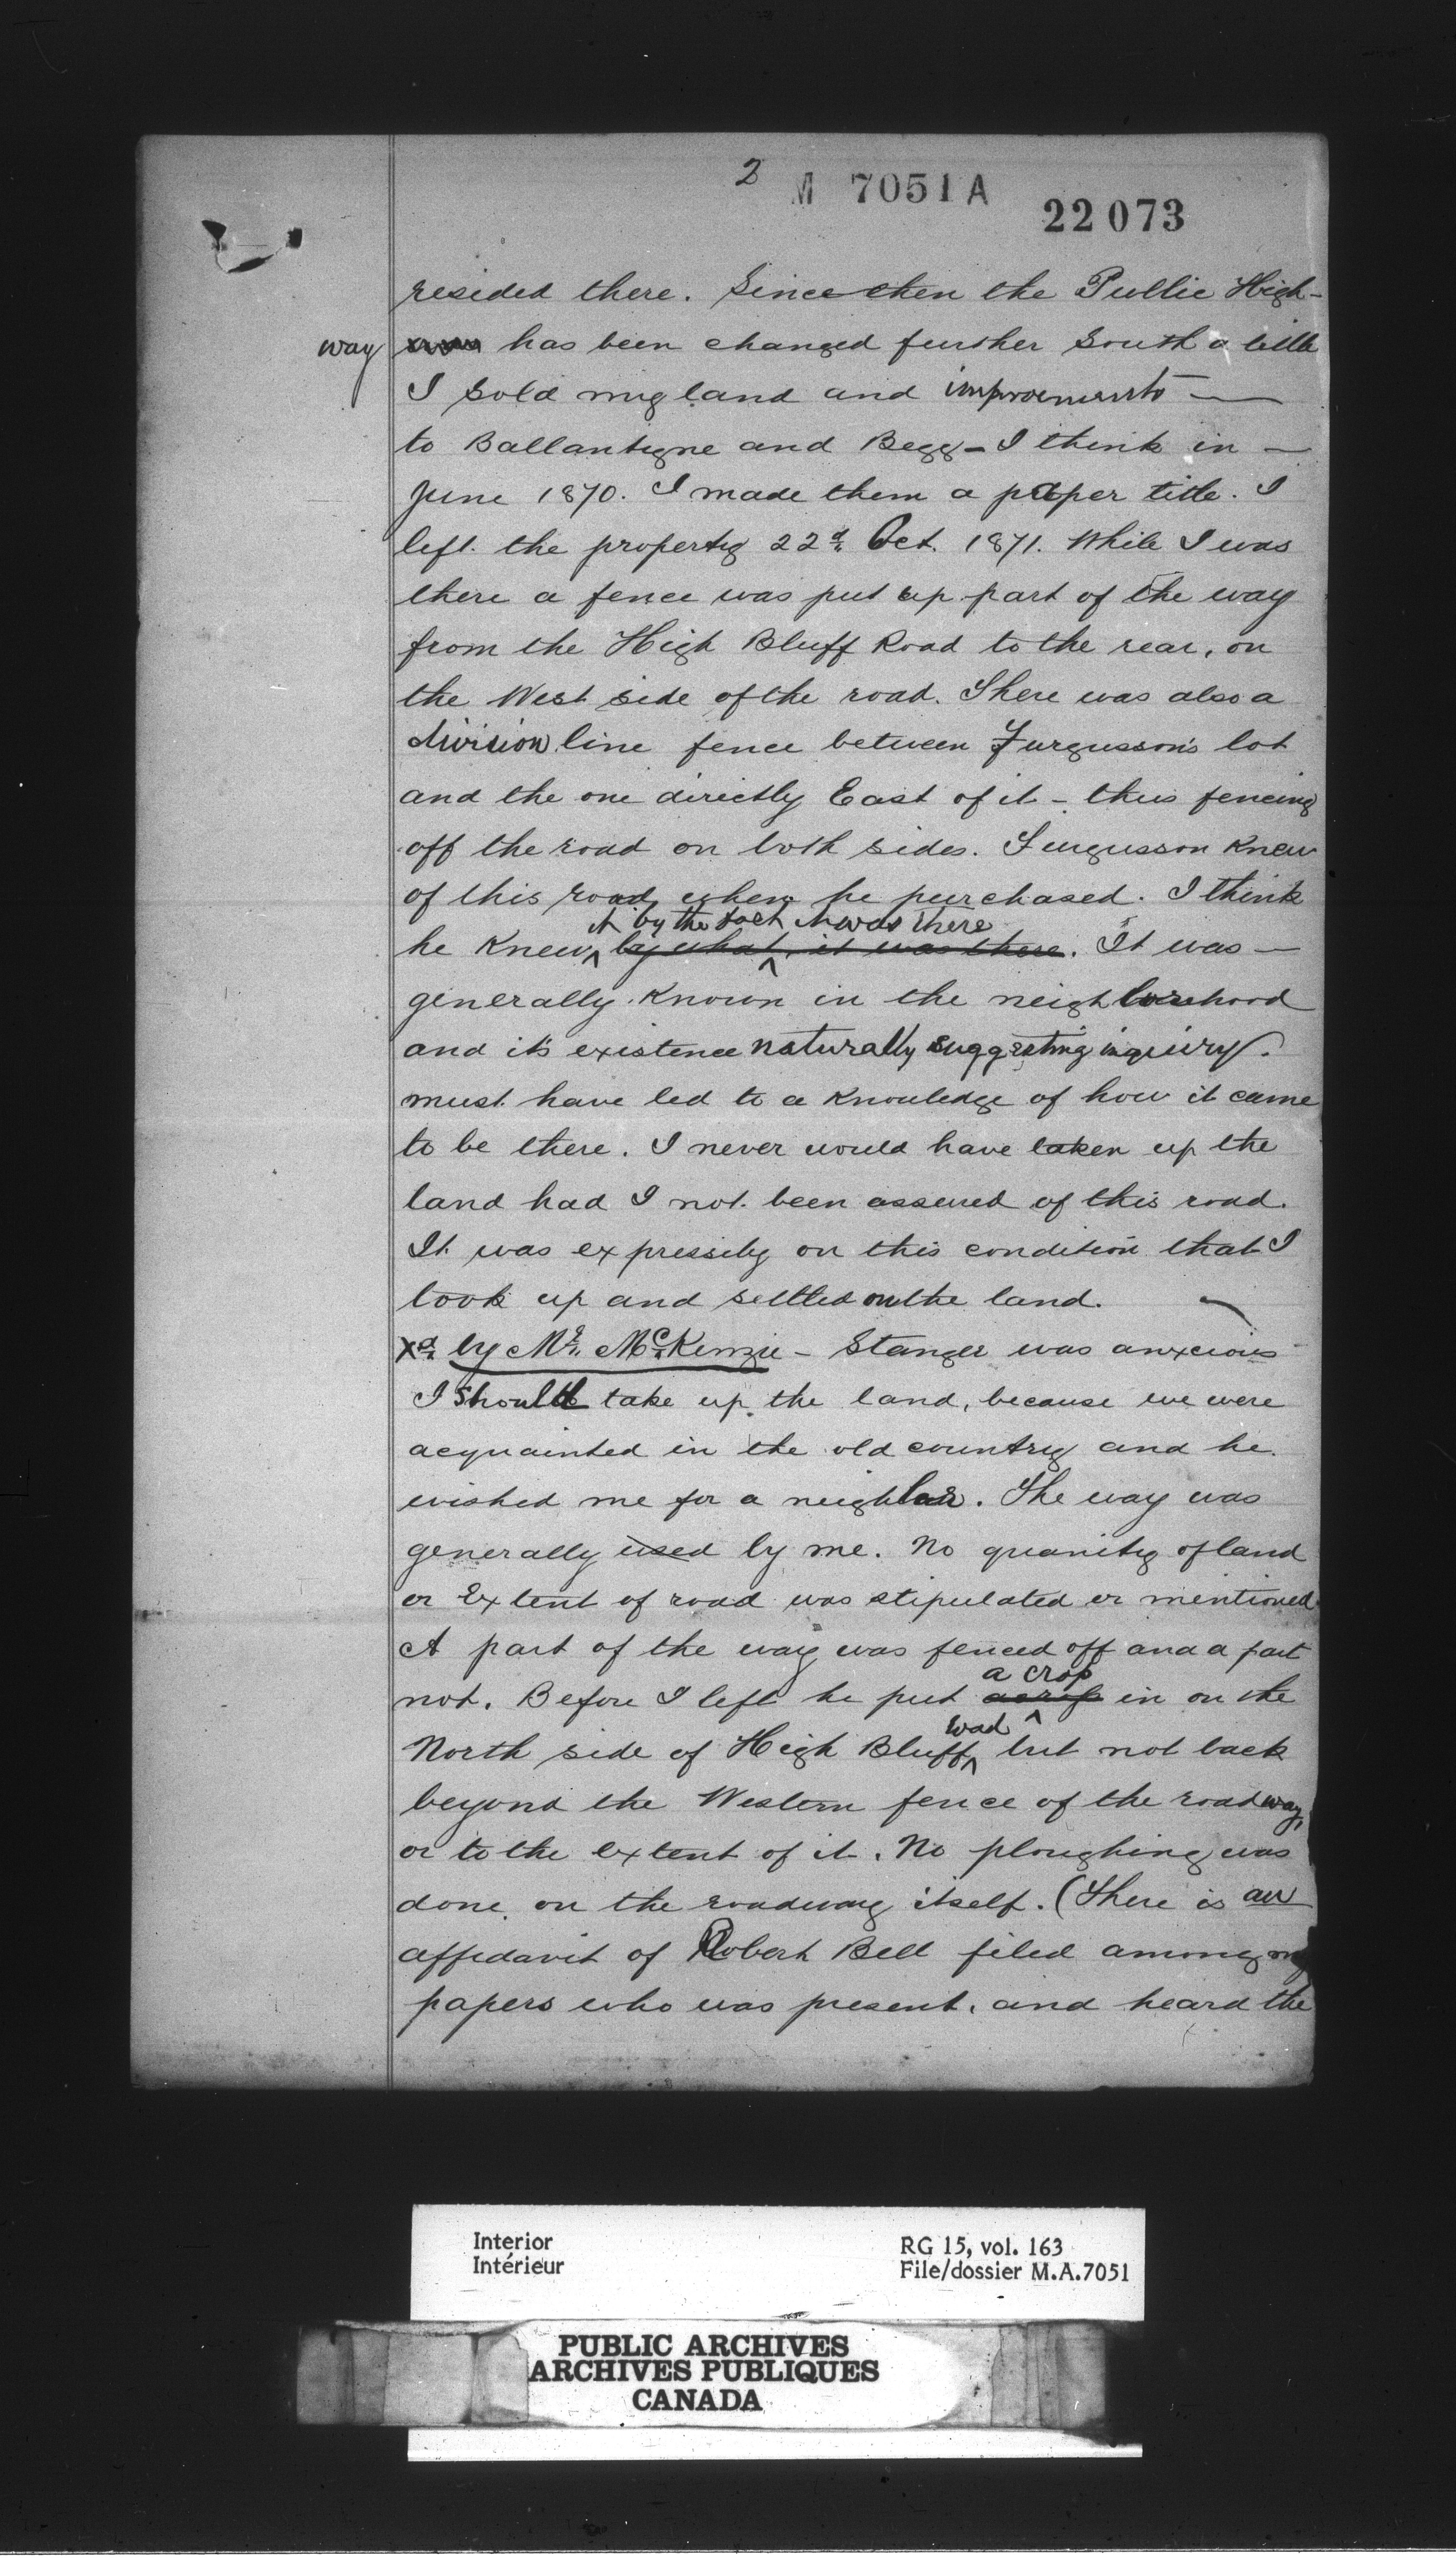 2
M 7051 A
22073
resided there. Since then the Public High-
way has been changed further South a little
I sold my land and improvements —
to Ballantyne and Begg - I think in —
June 1870. I made them a paper title. I
left the property 22d Oct. 1871. While I was
there a fence was put up part of the way
from the High Bluff Road to the rear, on
the West side of the road. There was also a
division line fence between Furgusson's lot
and the one directly East of it - thus fencing
off the road on both sides. Furgusson Knew
of this road when he purchased. I think
it by the fact it was there
he Knew by what it was there. It was —
generally Known in the neighborhood
and it's existence naturally suggesting inquiry.
must have led to a Knowledge of how it came
to be there. I never would have taken up the
land had I not been assured of this road.
It was expressly on this condition that I
took up and settled on the land.
Xd by Mr. McKenzie - Stanger was anxcious
I should take up the land, because we were
acquainted in the old country and he
wished me for a neighbor. The way was
generally used by me. No quanity of land
or Extent of road was stipulated or mentioned
A part of the way was fenced off and a part
a crop
not. Before I left he put in on the
road
North side of High Bluff but not back
beyond the Western fence of the roadway,
or to the extent of it. No ploughing was
done on the roadway itself. (There is an
affidavit of Robert Bell filed among my
papers who was present, and heard the
Interior
Intérieur
RG 15, vol. 163
File/dossier M.A.7051
PUBLIC ARCHIVES
ARCHIVES PUBLIQUES
CANADA